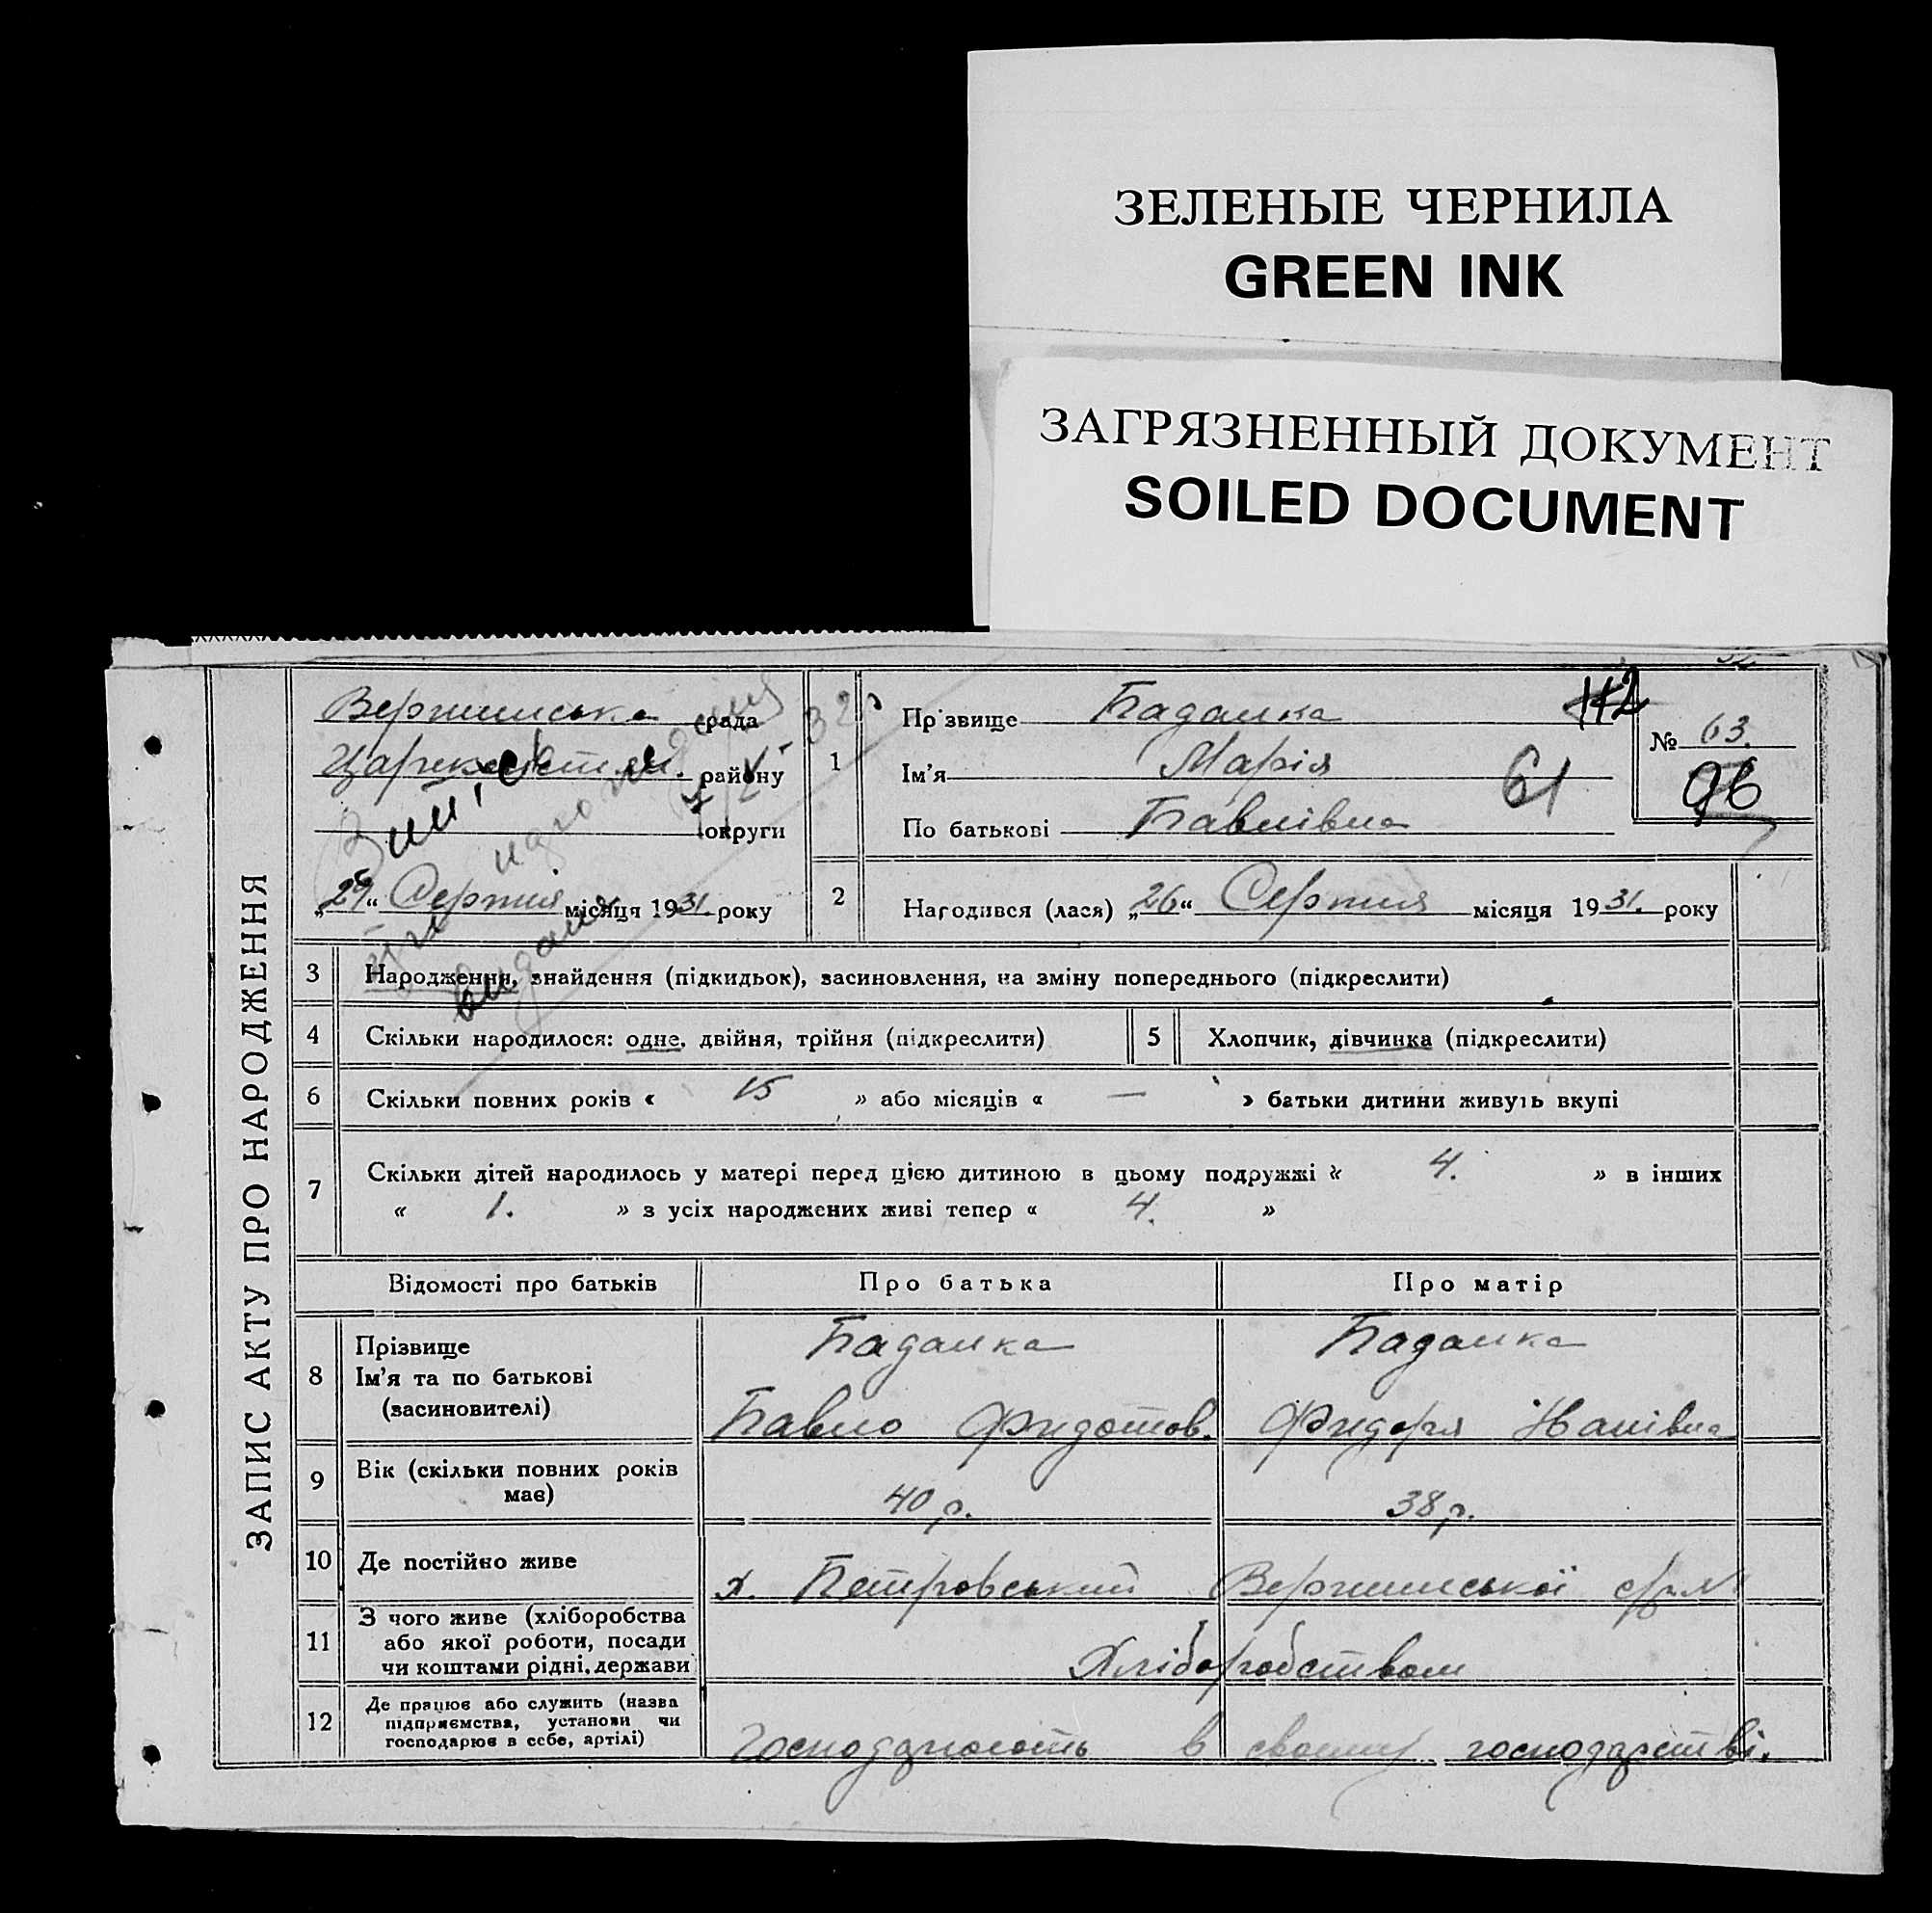 ЗЕЛЕНЫЕ ЧЕРНИЛА
GREEN INK
ЗАГРЯЗНЕННЫЙ ДОКУМЕНТ
SOILED DOCUMENT
ЗАПИС АКТУ ПРО НАРОДЖЕННЯ
рада
району
округи
"29" Серпня місяця 1931. року
32
1
Прізвище Бадамка
Ім'я Марія
По батькові Павлівна
112
61
№ 63.
96
2 Народився (лася) „26“ Серпня місяця 1931. року
3 Народження, знайдення (підкидьок), засиновлення, на зміну попереднього (підкреслити)
4 Скільки народилося: одне, двійня, трійня (підкреслити)
5 Хлопчик, дівчинка (підкреслити)
6 Скільки повних років « 15 » або місяців « — » батьки дитини живуть вкупі
7 Скільки дітей народилось у матері перед цією дитиною в цьому подружжі « 4. » в інших
« 1. » з усіх народжених живі тепер « 4. »
Відомості про батьків Про батька Про матір
8 Прізвище
Ім'я та по батькові
(засиновителі)
Бадамка
Павло Фидотов.
Бадамка
Фидора Іванівна
9 Вік (скільки повних років
має)
40 р.
38 р.
10 Де постійно живе
х. Петровський Вершинської с/ради
11 З чого живе (хліборобства
або якої роботи, посади
чи коштами рідні, держави
Хліборобством
12 Де працює або служить (назва
підприємства, установи чи
господарює в себе, артілі)
господарюють в своему господарстві.